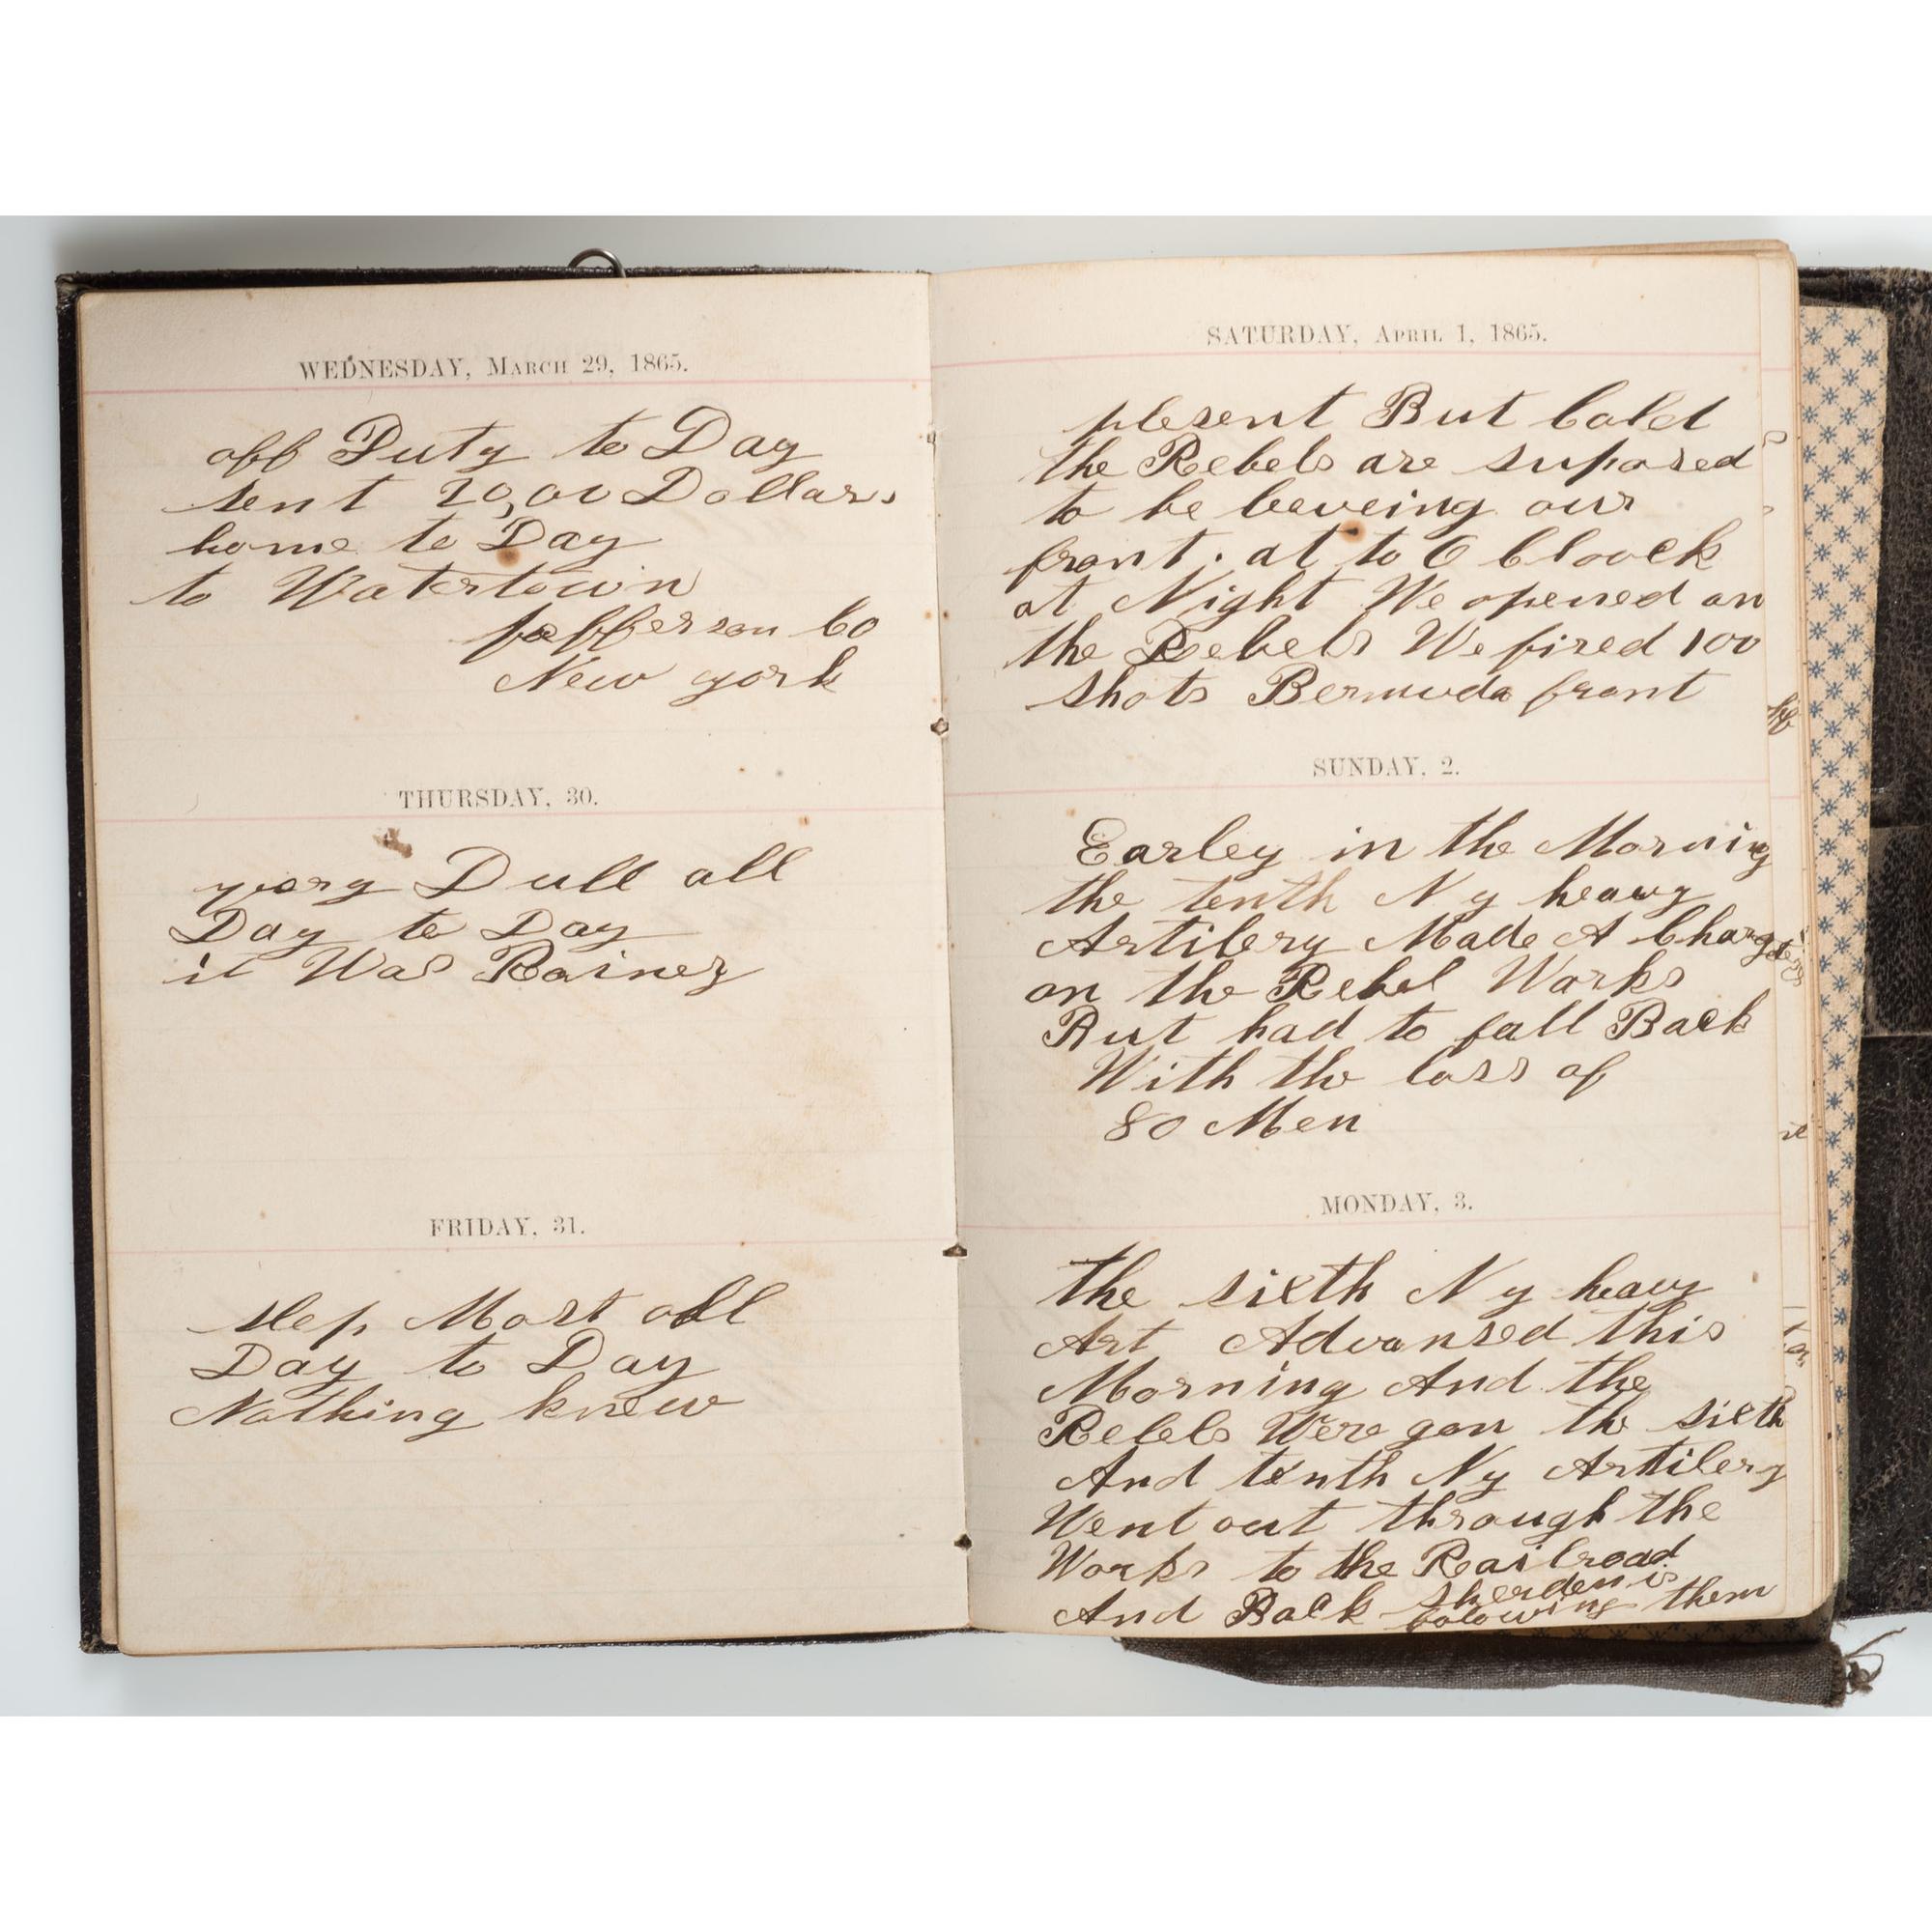 WEDNESDAY, MARCH 29, 1865.
off Duty to Day
sent 20,00 Dollars
home to Day
to Watertown
Jefferson Co
New york
THURSDAY, 30.
very Dull all
Day to Day
it Was Rainey
FRIDAY, 31.
slep Most all
Day to Day
Nothing knew
SATURDAY, APRIL 1, 1865.
plesent But Cold
the Rebels are suposed
to be leveing our
front. at to O Cloock
at Night We opened on
the Rebels We fired 100
shots Bermuda front
SUNDAY, 2.
Earley in the Morning
the tenth N y heavy
Artilery Made A Charge
on the Rebel Works
But had to fall Back
With the loss of
80 Men
MONDAY, 3.
the sixth N y heavy
Art Advansed this
Morning And the
Rebels Were gon the sixth
And tenth Ny Artilery
Went out through the
Works to the Railroad
And Back sherden is
folowing them